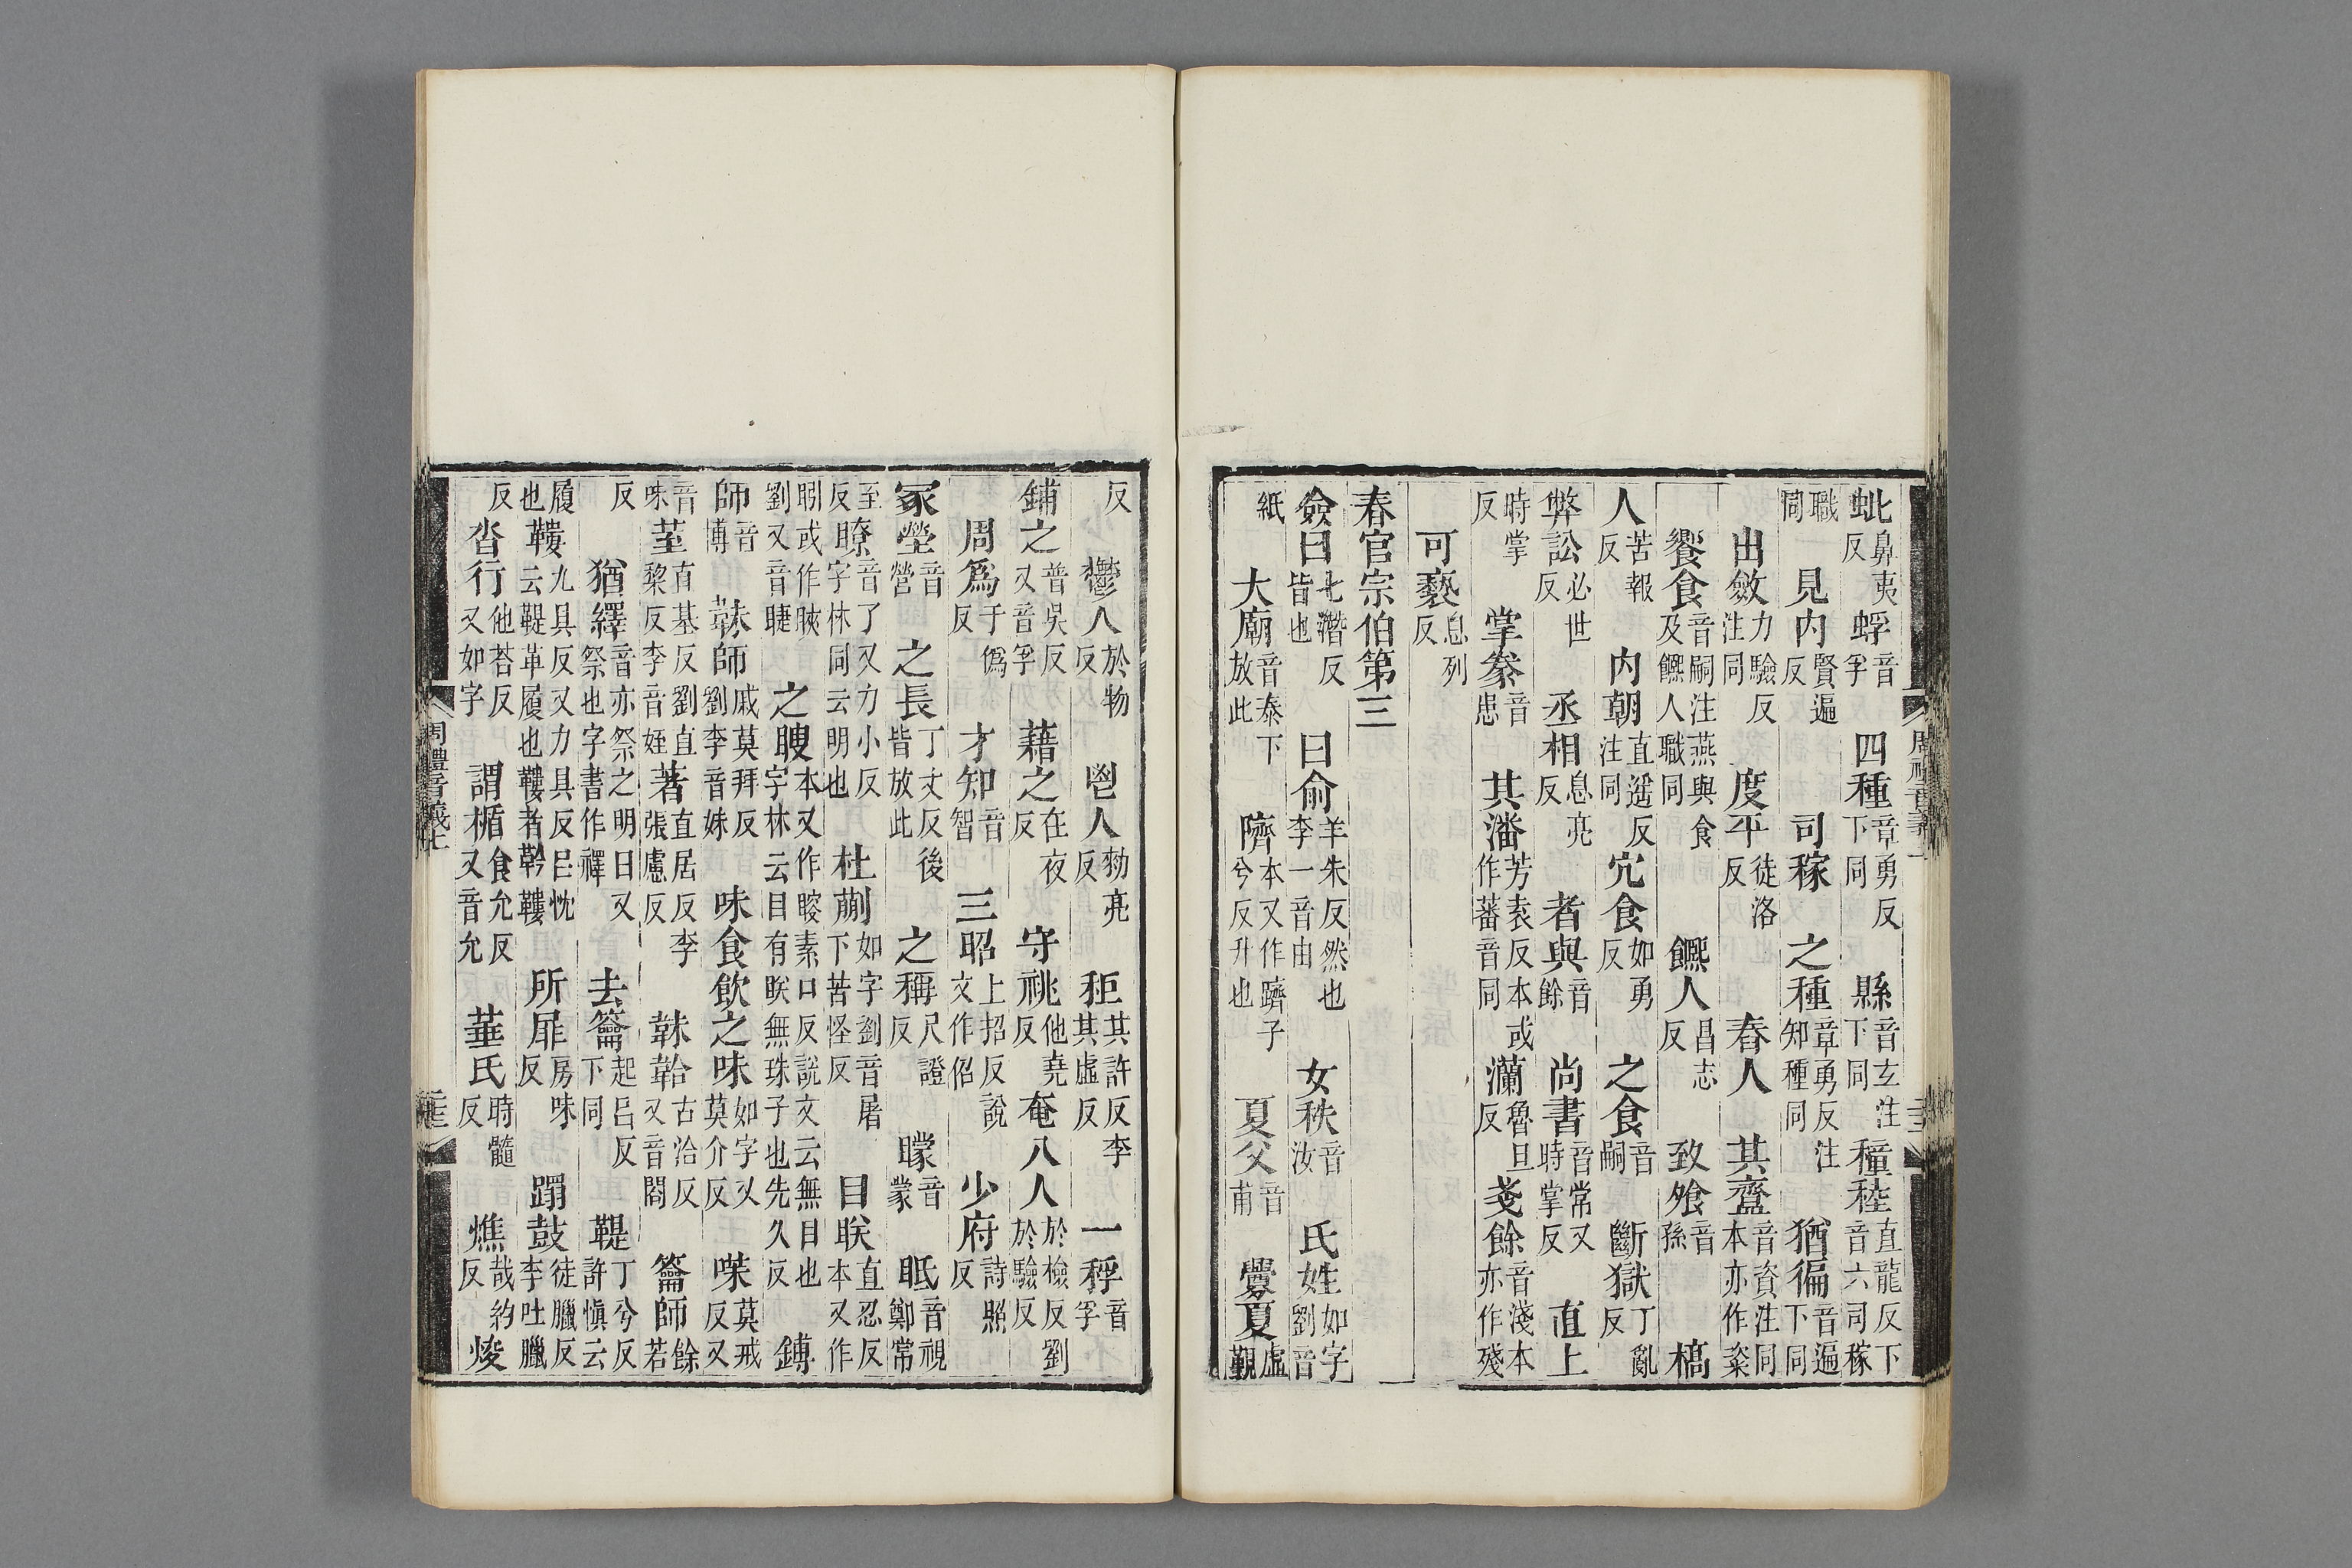 蚍鼻夷反 蜉音孚 四種章勇反下同 縣音玄注下同 穜稑直龍反下音六司稼
職同 見内賢遍反 司稼 之種章勇反注知種同 猶徧音遍下同
出斂力驗反注同 度平徒洛反 舂人 其齍音資注同本亦作粢
饗食音嗣注燕與食及饎人職同 饎人昌志反 致飧音孫 槁
人苦報反 内朝直遥反注同 宂食如勇反 之食音嗣 斷獄丁亂反
弊訟必世反 丞相息亮反 者與音餘 尚書音常又時掌反 直上
時掌反 掌豢音患 其潘芳袁反本或作蕃音同 灡魯旦反 戔餘音淺本亦作殘
可褻息列反
春官宗伯第三
僉曰七潛反皆也 曰俞羊朱反然也李一音由 女秩音汝 氏姓如字劉音
紙 大廟音泰下放此 隮本又作躋子兮反升也 夏父音甫 釁夏虛覲
反 鬱人於物反 鬯人勑亮反 秬其許反李其虛反 一稃音孚
鋪之普吳反又音孚 藉之在夜反 守祧他堯反 奄八人於檢反劉於驗反
周爲于僞反 才知音智 三昭上招反說文作佋 少府詩照反
冢塋音營 之長丁丈反後皆放此 之稱尺證反 矇音蒙 眂音視鄭常
至反 瞭音了又力小反字林同云明也 杜蒯如字劉音屠下苦怪反 目眹直忍反本又作
眀或作䀹劉又音睫 之瞍本又作䁂素口反說文云無目也字林云目有眹無珠子也先久反 鎛
師音博 韎師戚莫拜反劉李音妹 味食飲之味如字又莫介反 㯟莫戒反又
音味 莖直基反劉直黎反李音姪 著直居反李張慮反 韎韐古洽反又音閤 籥師餘若
反 猶繹音亦祭之明日又祭也字書作襗 去籥起呂反下同 鞮丁兮反許愼云
履也 鞻九具反又力具反呂忱云鞮革履也鞻者䩭鞻 所屝房味反 蹋鼓徒臘反李吐臘
反 沓行他荅反又如字 謂楯食允反又音允 菙氏時髓反 燋哉約反 焌
周禮音義上
周禮音義上